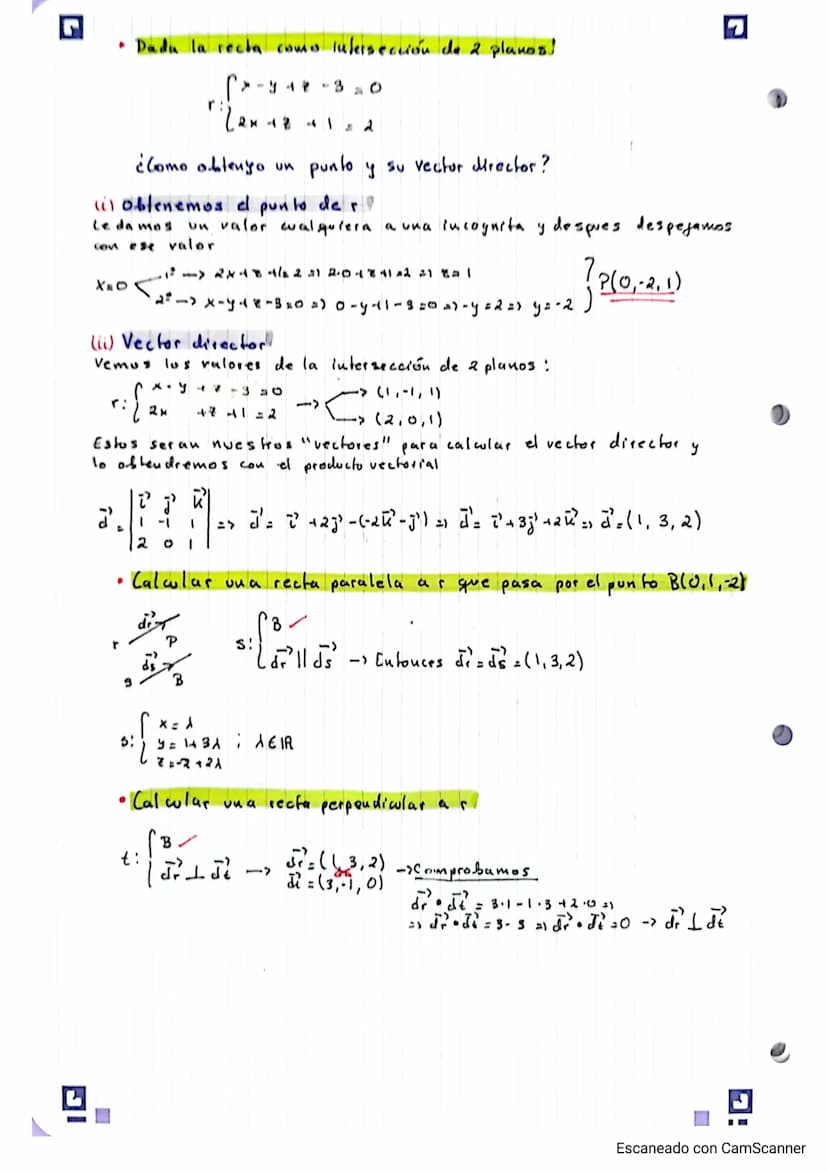 • Dada la recta como intersección de 2 planos!
r: { x - y + z - 3 = 0
2x + z + 1 = 2
¿Como obtengo un punto y su vector director?
(i) Obtenemos el punto de r
Le damos un valor cualquiera a una incognita y despues despejamos
con ese valor
x=0 1º → 2x+z+1=2 => 2·0+z+1=2 => z=1
2º → x-y+z-3=0 => 0-y+1-3=0 => -y=2 => y=-2 } P(0,-2,1)
(ii) Vector director
Vemos los valores de la intersección de 2 planos:
r: { x - y + z - 3 = 0 → (1,-1,1)
2x +z +1 = 2 → (2,0,1)
Estos seran nuestros "vectores" para calcular el vector director y
lo obtendremos con el producto vectorial
d⃗ = | i⃗ j⃗ k⃗ |
| 1 -1 1 | => d⃗ = i⃗ +2j⃗ -(-2k⃗ - j⃗) => d⃗ = i⃗ + 3j⃗ + 2k⃗ => d⃗ = (1, 3, 2)
| 2 0 1 |
• Calcular una recta paralela a r que pasa por el punto B(0,1,-2)
dr⃗
r P
ds⃗
s B
s: { B ✓
dr⃗ || ds⃗ → Entonces dr⃗ = ds⃗ = (1,3,2)
s: { x = λ
y = 1+3λ ; λ∈IR
z = -2+2λ
• Calcular una recta perpendicular a r
t: { B ✓
dr⃗ ⊥ dt⃗ → dr⃗ = (1,3,2)
dt⃗ = (3,-1,0) → Comprobamos
dr⃗ • dt⃗ = 3·1-1·3+2·0 =>
=> dr⃗ • dt⃗ = 3-3 => dr⃗ • dt⃗ = 0 → dr⃗ ⊥ dt⃗
Escaneado con CamScanner